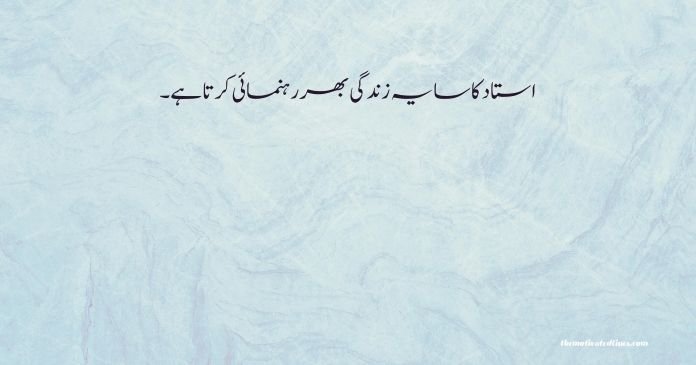 استاد کا سایہ زندگی بھر رہنمائی کرتا ہے۔
themotivatedlines.com